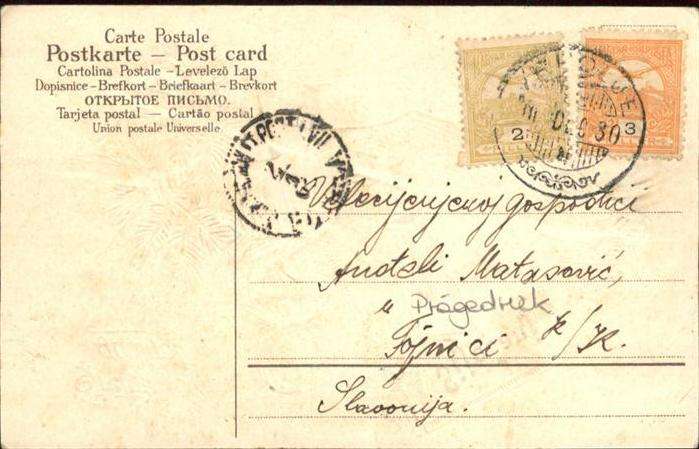 Carte Postale
Postkarte — Post card
Cartolina Postale – Levelező Lap
Dopisnice – Brefkort – Briefkaart – Brevkort
ОТКРЫТОЕ ПИСЬМО.
Tarjeta postal — Cartão postal
Union postale Universelle.
2
3
DEC 30
Velecijenjenoj gospodjici
Anđeli Matasović,
u
Prägedruck
Fojnici
Slavonija.